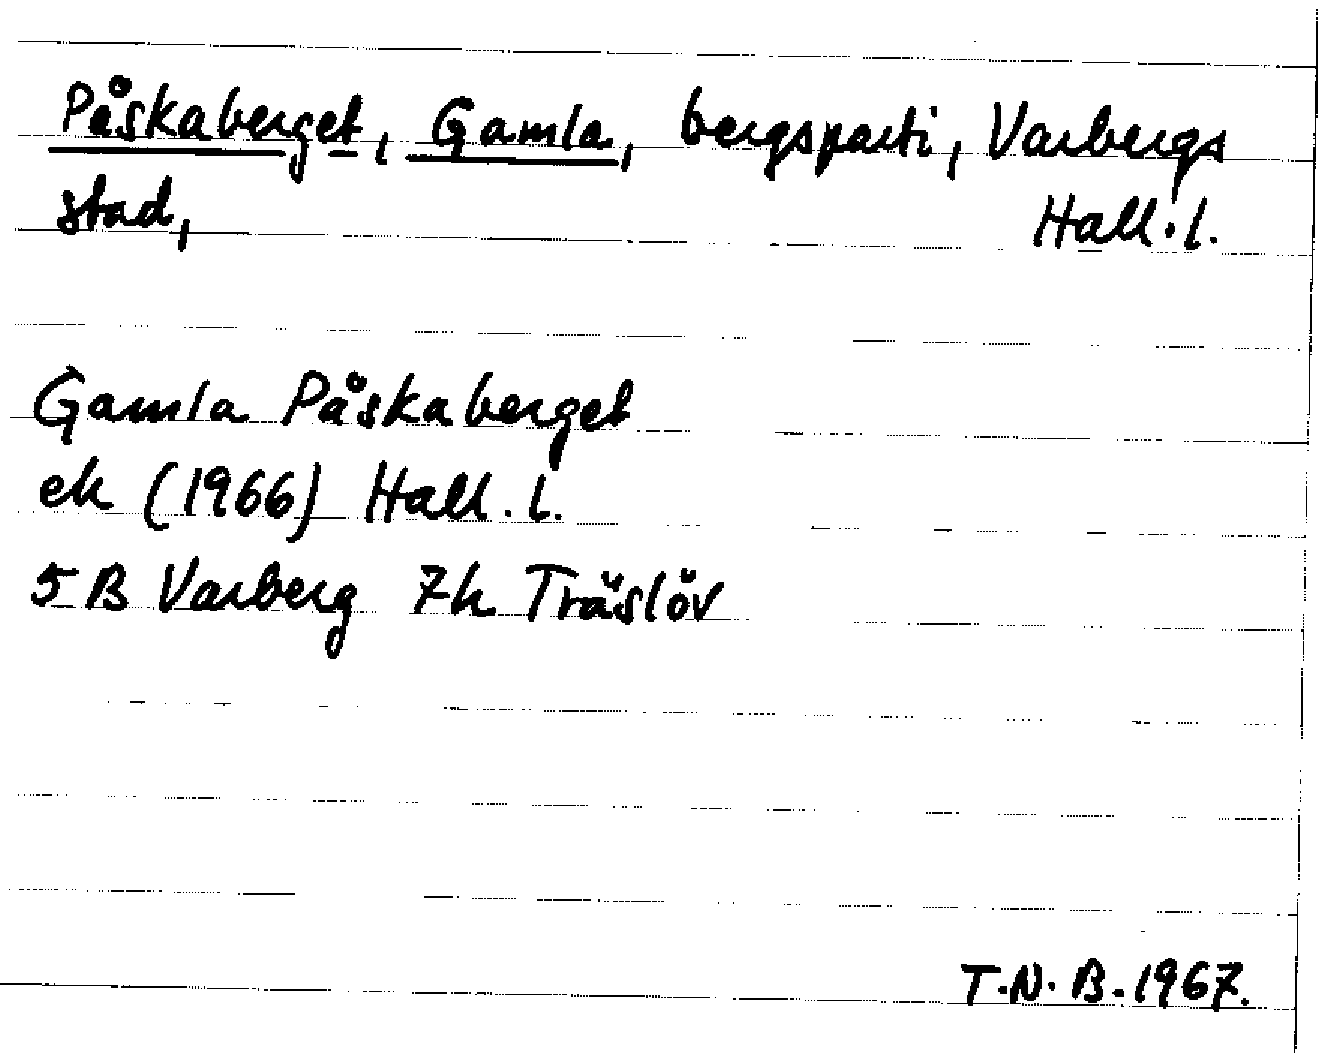 Påskaberget, Gamla, bergsparti, Varbergs
stad, Hall.l.
Gamla Påskaberget
ek (1966) Hall.l.
5B Varberg 7h Träslöv
T.N.B.1967.